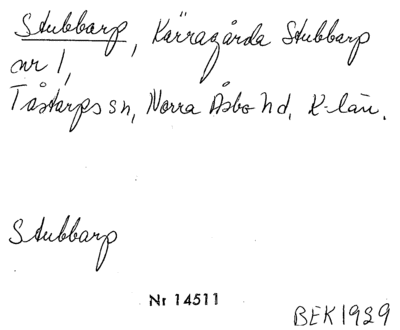 Stubbarp, Kärragårda Stubbarp
nr 1,
Tåstarps sn, Norra Åsbo hd, K-län.
Stubbarp
Nr 14511
BEK 1929